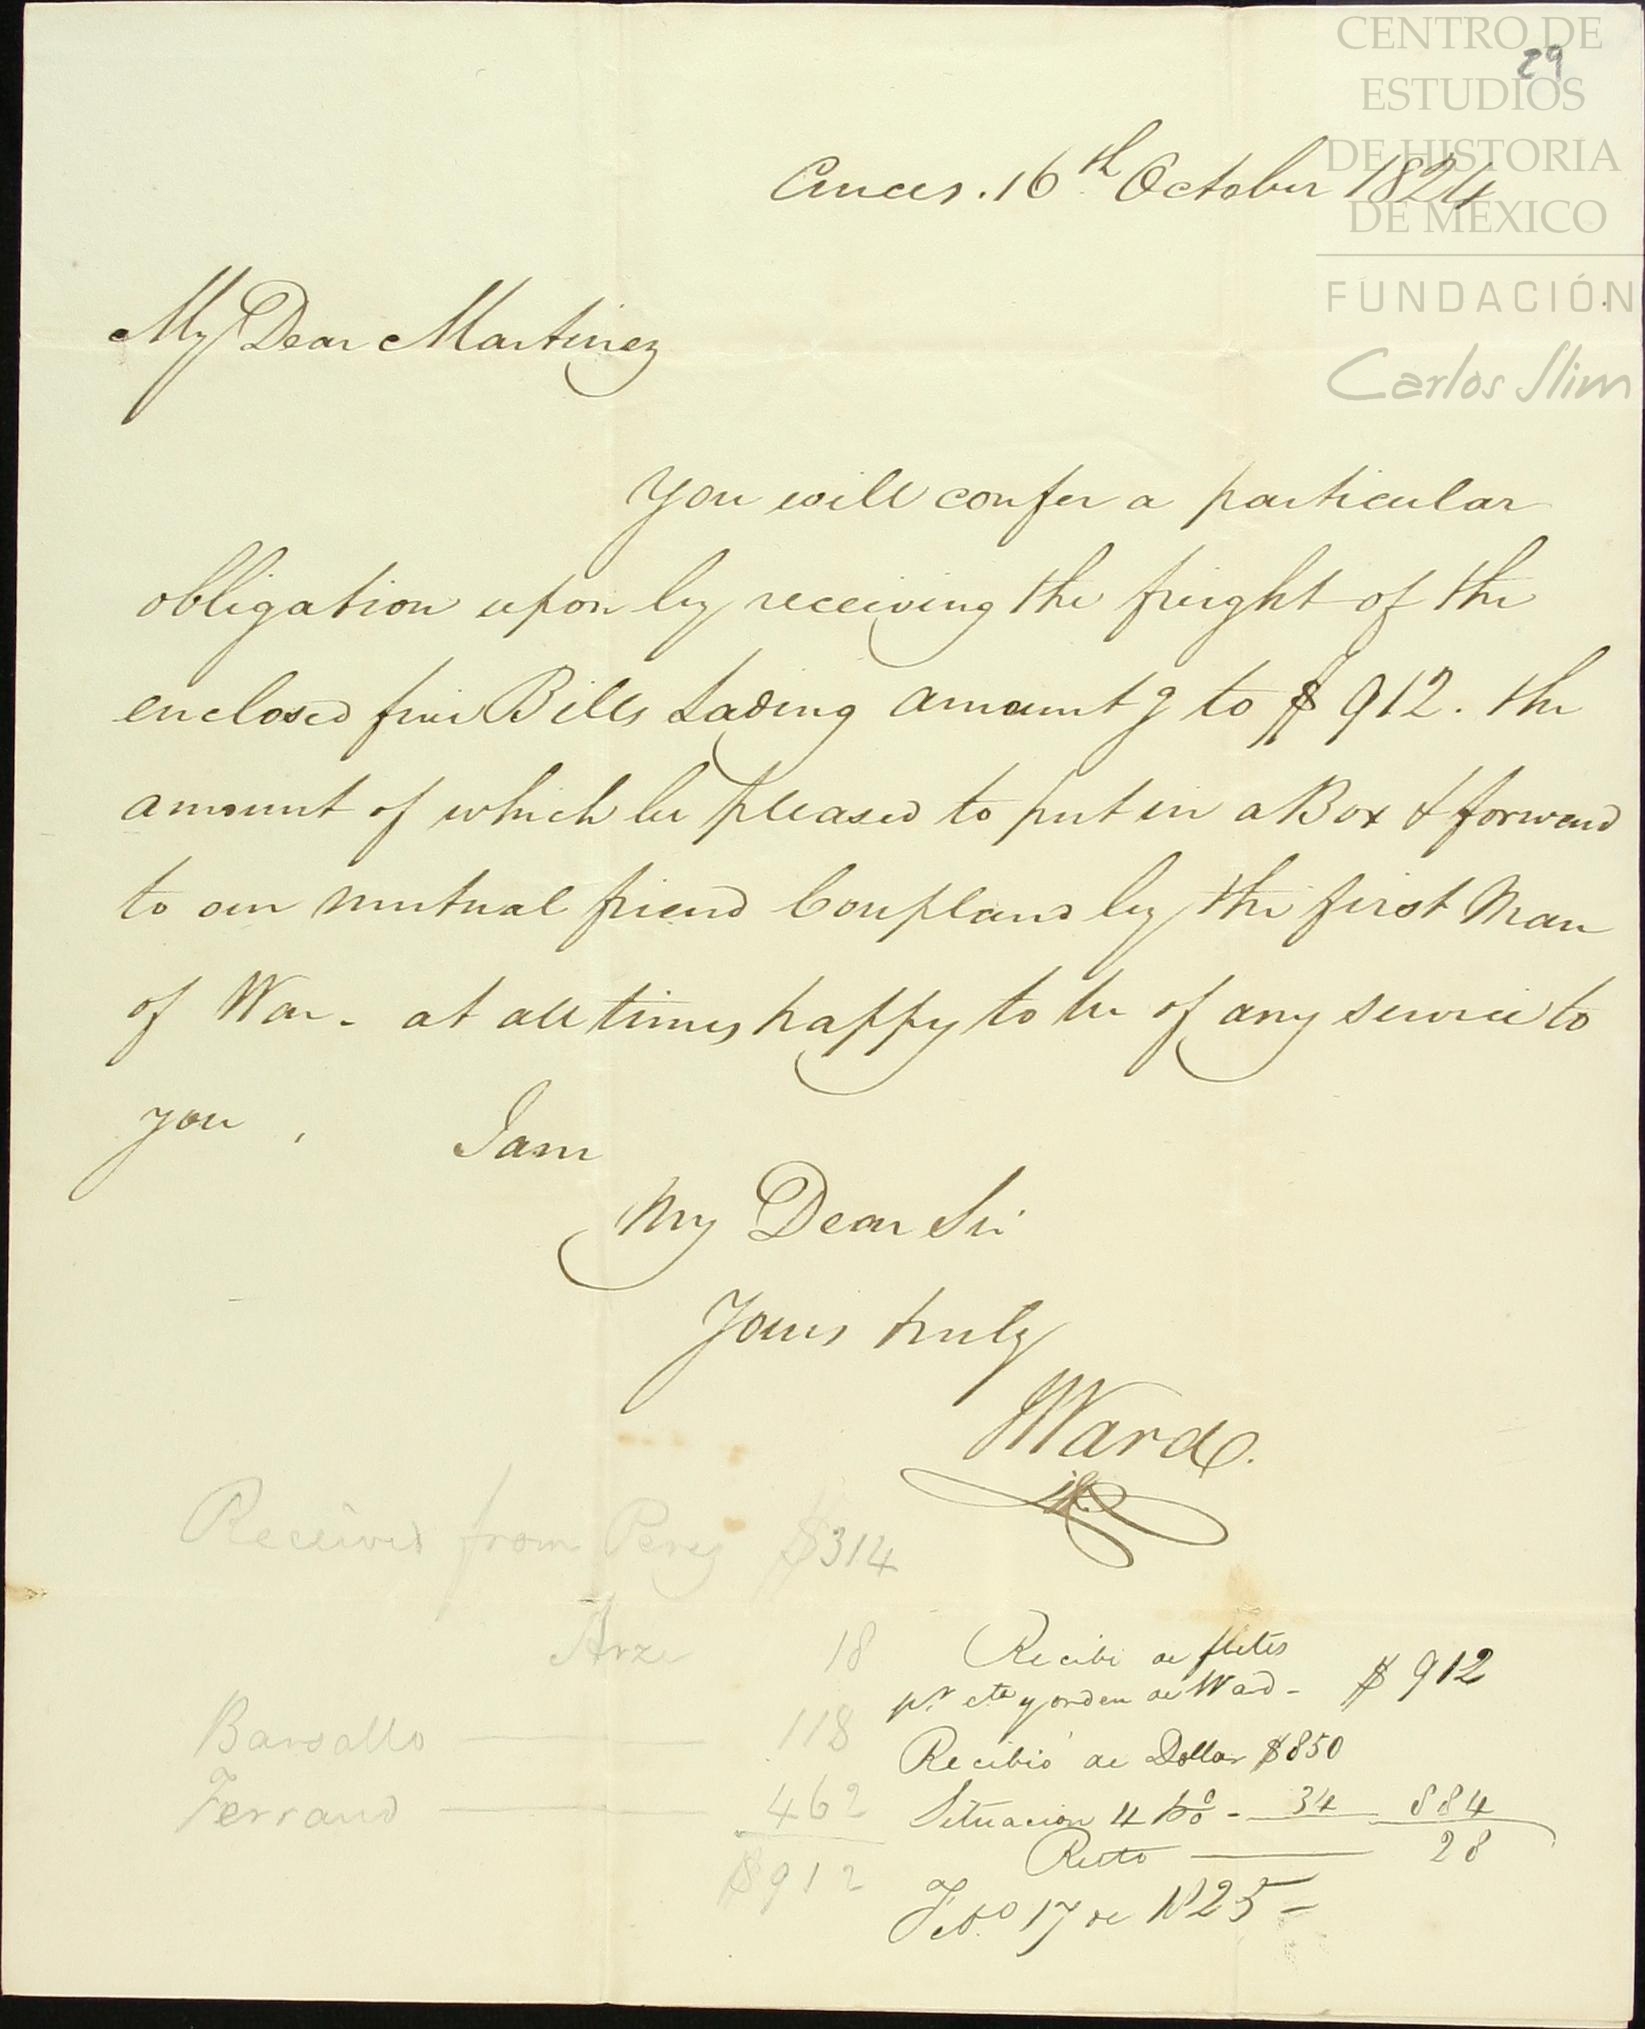 CENTRO DE
ESTUDIOS
DE HISTORIA
DE MÉXICO
FUNDACIÓN
Carlos Slim
29
16th October 1824
My Dear Martinez
You will confer a particular
obligation upon by receiving the freight of the
enclosed five Bills Lading amountg to $912. the
amount of which be pleased to put in a Box & forward
to our mutual friend Coupland by the first Man
of War - at all times happy to be of any service to
you, I am
My Dear Sir
Yours truly
Ward.
Received from Perez $314
Arze 18
Barsallo 118
Ferrand 462
$912
Recibi de fletes
pr cta y orden de Ward - $912
Recibió de Dollar $850
Situacion 4 %  - 34 884
Resto 28
Febo 17 de 1825 -